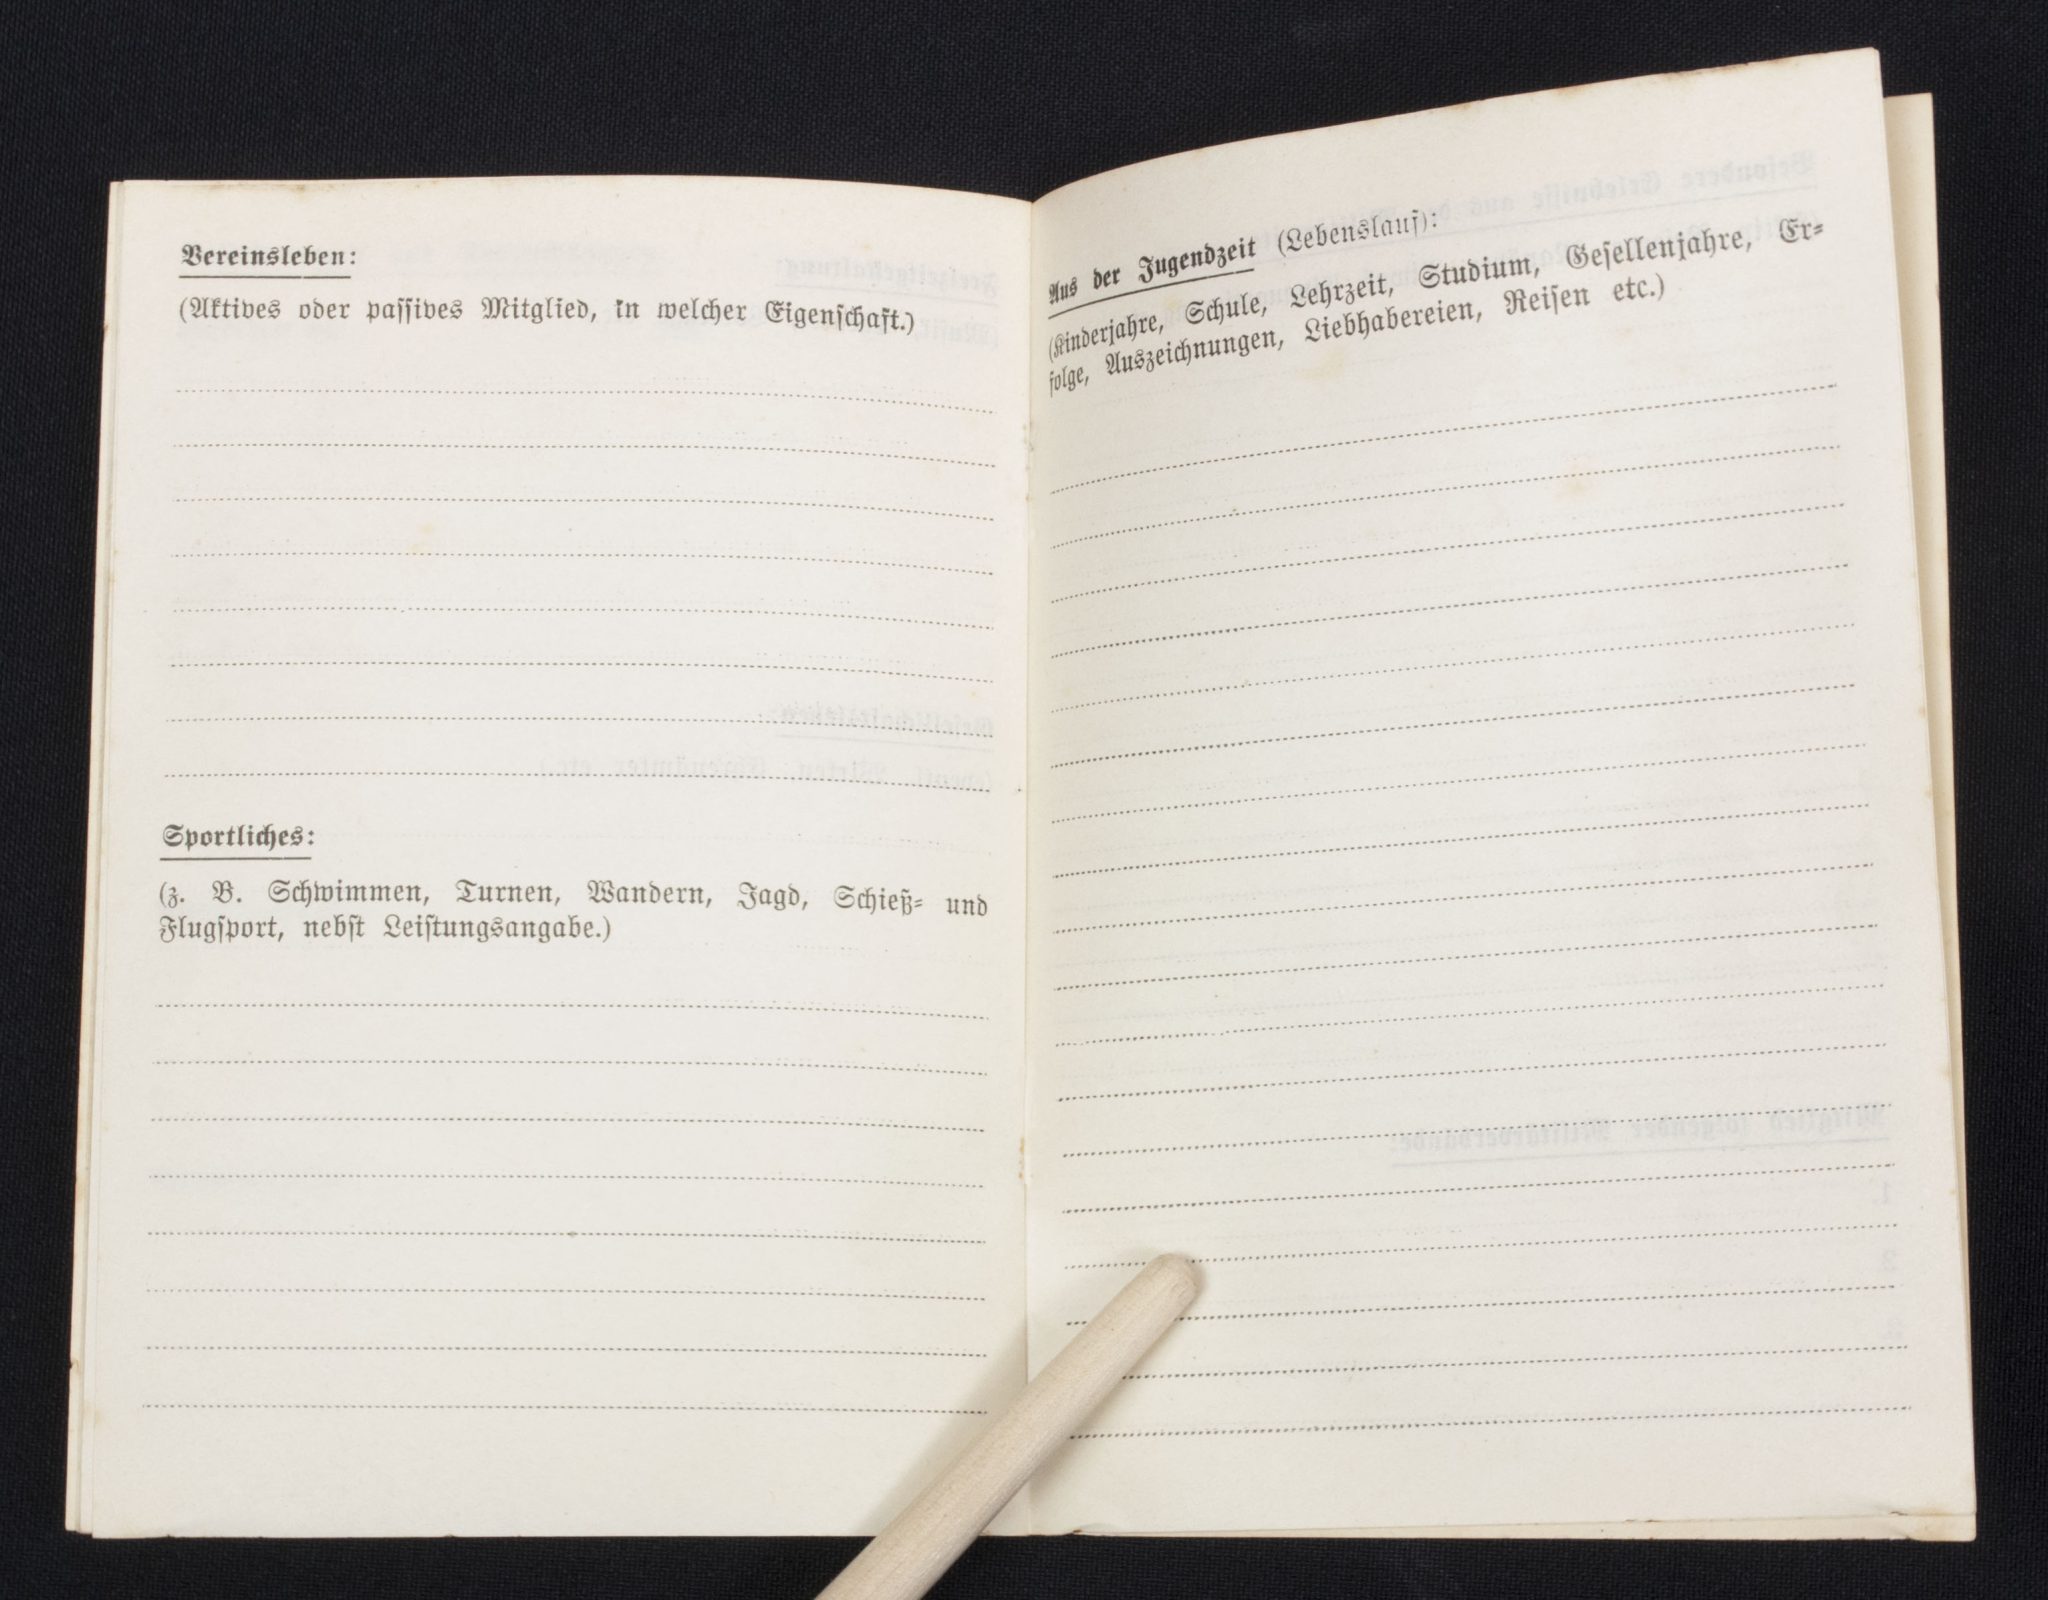 Vereinsleben:
(Aktives oder passives Mitglied, in welcher Eigenschaft.)
Sportliches:
(z. B. Schwimmen, Turnen, Wandern, Jagd, Schieß- und
Flugsport, nebst Leistungsangabe.)
Aus der Jugendzeit (Lebenslauf):
(Kinderjahre, Schule, Lehrzeit, Studium, Gesellenjahre, Er-
folge, Auszeichnungen, Liebhabereien, Reisen etc.)